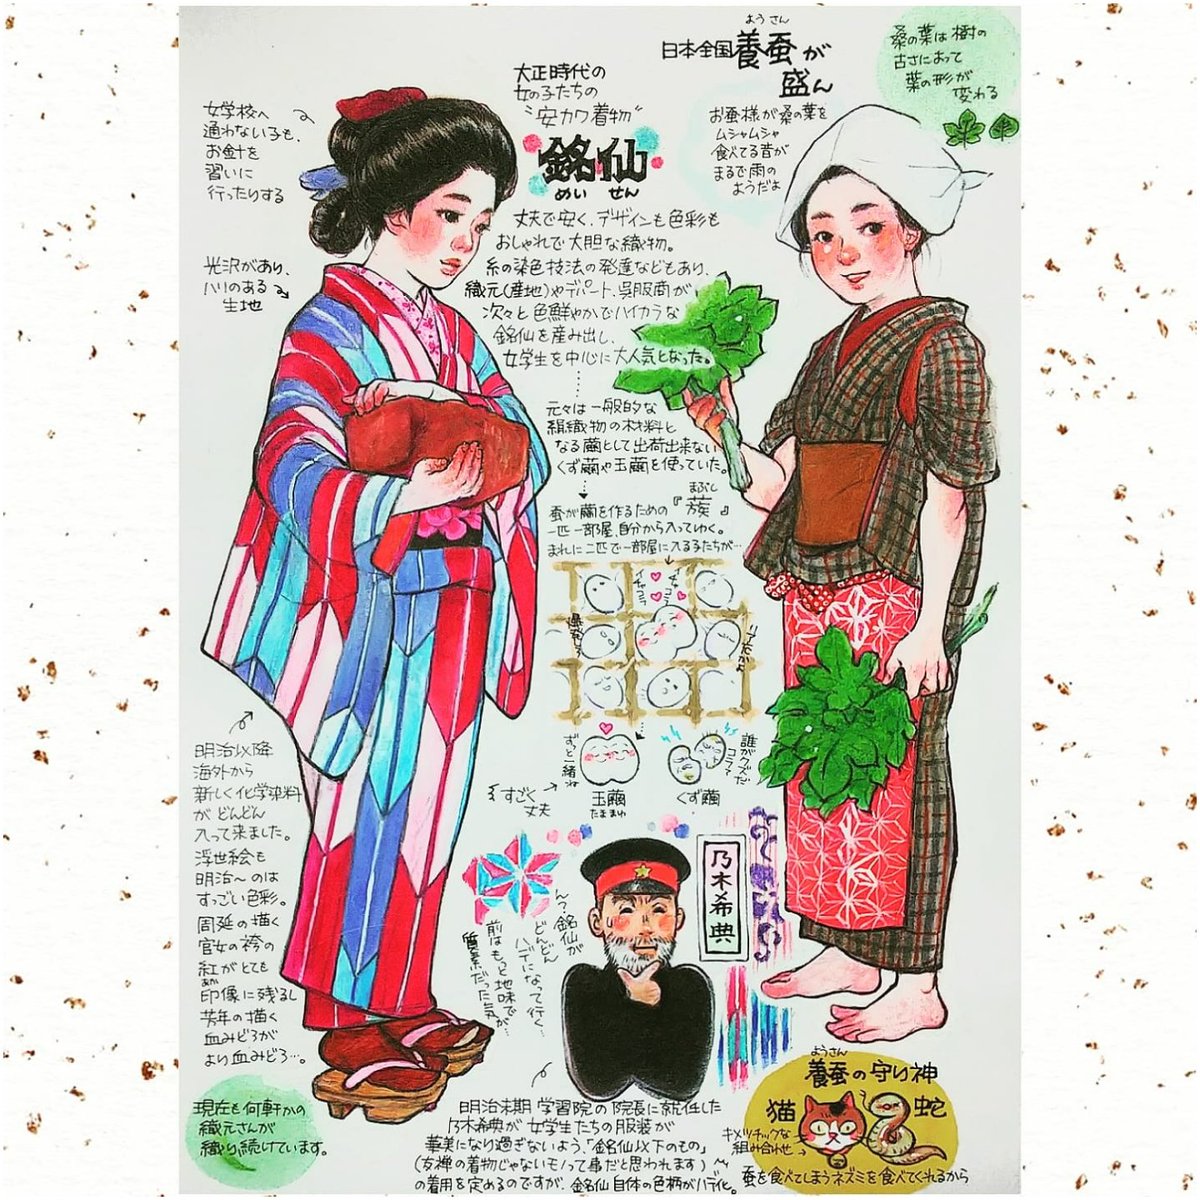 ようさん
日本全国養蚕が
盛ん
桑の葉は樹の
古さによって
葉の形が
変わる
お蚕様が桑の葉を
ムシャムシャ
食べてる音が
まるで雨の
ようだよ
大正時代の
女の子たちの
"安カワ着物"
銘仙
めいせん
女学校へ
通わない子も、
お針を
習いに
行ったりする
光沢があり、
ハリのある
生地
丈夫で安く、デザインも色彩も
おしゃれで大胆な織物。
糸の染色技法の発達などもあり、
織元(産地)やデパート、呉服商が
次々と色鮮やかでハイカラな
銘仙を産み出し、
女学生を中心に大人気となった。
元々は一般的な
絹織物の材料と
なる繭として出荷出来ない
くず繭や玉繭を使っていた。
まぶし
蚕が繭を作るための『蔟』
一匹一部屋、自分から入っていく。
まれに二匹で一部屋に入る子たちが…
イチャコラ
イチャコラ
ずっと一緒ね
玉繭
たままゆ
誰がクズだコラァ
くず繭
すごく
丈夫
明治以降
海外から
新しく化学染料
がどんどん
入って来ました。
浮世絵も
明治〜のは
すっごい色彩。
周延の描く
官女の袴の
紅がとても
あか
印像に残るし
芳年の描く
血みどろが
より血みどろ…。
現在も何軒かの
織元さんが
織り続けています。
乃木希典
ん?銘仙が
どんどん
ハデになって行く…
前はもっと地味で
質素だった気が…
明治末期 学習院の院長に就任した
乃木希典が女学生たちの服装が
華美になり過ぎないよう、"銘仙以下のもの"
(友禅の着物じゃないモノって事だと思われます)
の着用を定めるのですが、銘仙自体の色柄がハデ化。
ようさん
養蚕の守り神
猫
蛇
キメツチックな
組み合わせ
蚕を食べてしまうネズミを食べてくれるから